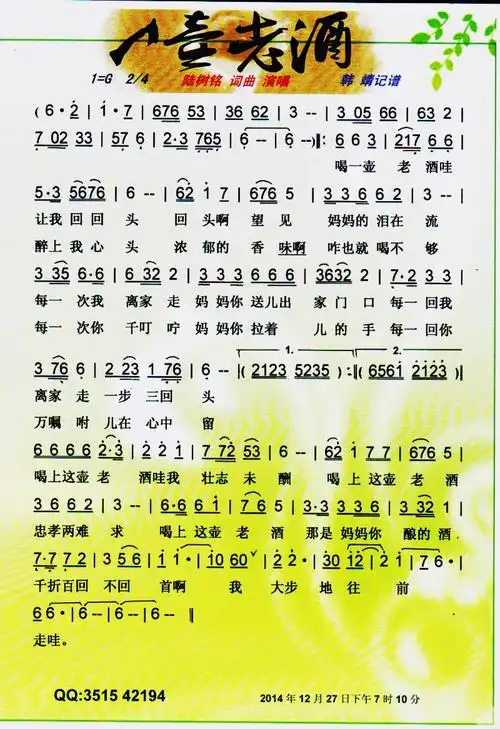 一壶老酒
1=G 2/4 陆树铭 词曲 演唱 韩 靖记谱
( 6·2 | 1·7 | 676 53 | 36 62 | 3 -- | 3 05 66 | 63 2 |
7 02 33 | 57 6 | 2·3 765 | 6 -- | 6 --) ‖: 6 6 3 | 217 6 6 |
喝一壶 老 酒哇
5·3 5676 | 6 -- | 62 1 7 | 676 5 | 3 3 6 6 2 | 3 3 2 1 |
让我 回 回 头 回 头啊 望 见 妈妈的 泪在 流
醉上 我 心 头 浓 郁的 香 味啊 咋也就 喝不 够
3 35 6·6 | 6 32 2 | 3 3 3 6 6 6 | 3632 2 | 7·2 3 3 |
每一 次我 离家 走 妈妈你 送儿出 家 门 口 每一 回我
每一 次你 千叮 咛 妈妈你 拉着 儿 的 手 每一 回你
3 76 6 | 2 23 1 76 | 6 -- | (2123 5235) :‖ (6561 2123) ‖
1. 2.
离家 走 一步 三回 头
万嘱 咐 儿在 心中 留
6 6 6 6 2·3 | 2 2 1 | 7 72 53 | 6 -- | 62 1 7 7 | 676 5 |
喝上这壶 老 酒哇我 壮志 未 酬 喝 上 这壶 老 酒
3 6 6 2 | 3 -- | 6·6 6 1 | 76 5 | 3 3 6 3 3 | 3 32 1 |
忠孝两难 求 喝上 这壶 老 酒 那是 妈妈你 酿的 酒.
7·7 7 2 | 3 56 | 1 1· | 10 60 ∨ | 2 2· | 30 12 | 2 1 | 7 6· |
千折百回 不回 首啊 我 大步 地 往 前
6 6· | 6 -- | 6 -- | 6 -- ‖
走哇。
QQ:3515 42194 2014 年 12 月 27 日下午 7 时 10 分